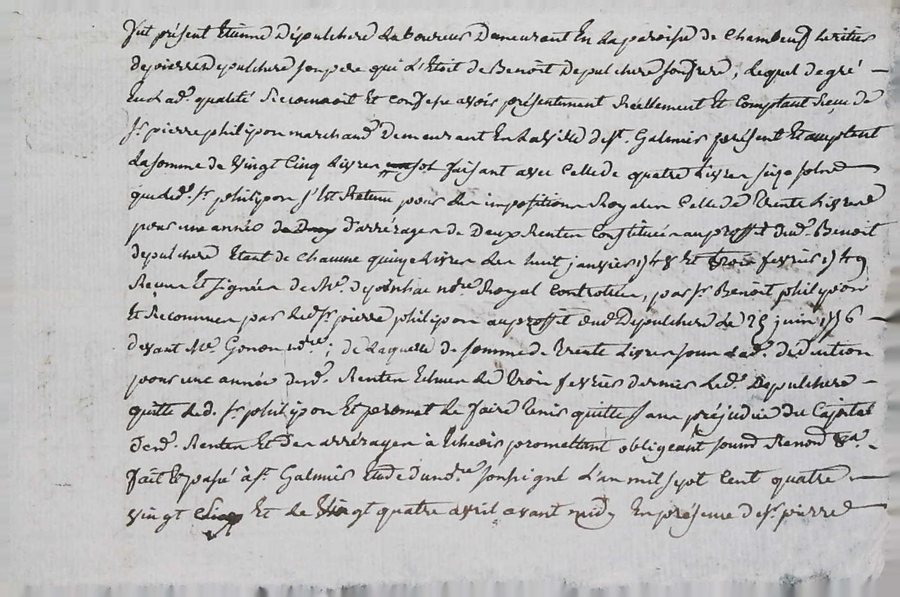 fut présent Etienne Depulchere Laboureur Demeurant En La paroisse de Chambeuf heritier
de pierre Depulchere son pere qui L'Etoit de Benoit Depulchere son frere, lequel de gré
En lad.e qualité Reconnoit Et confesse avoir présentement Reellement Et Comptant Reçu de
Sr. pierre philipon marchand Demeurant En La ville de St. Galmier present Et acceptant
La somme de vingt Cinq Livres sol faisant avec Celle de quatre Livres seize sols
que led. Sr. philipon s'Est Retenu pour les impositions Royales Celle de Trente Livres
pour une année d'arrérages de Deux Rentes Constituées au proffit dud. Benoit
depulchere Etant de Chacune quinze Livres Les huit janvier 1748 Et trois fevrier 1749
Recues Et signées de Me. notre Royal Controllées, par Sr. Benoit philipon
Et Reconnues par led. Sr. pierre philipon au proffit dud. Depulchere Le 25 juin 1756
devant Me. Gonon notre; de Laquelle de somme de Trente Livres sous lad.e deduction
pour une année desd. Rentes Echues Le Trois fevrier dernier led. Depulchere
quitte led. Sr. philipon Et promet Le faire tenir quitte sans préjudice du Capital
desd. Rentes Et des arrérages à Echeoir promettant obligeant soumd Renond &a.
fait Et passé à St. Galmier Etude du notre soussigné L'an mil sept Cent quatre
vingt Cinq Et Le vingt quatre avril avant midy En présence de Sr. pierre